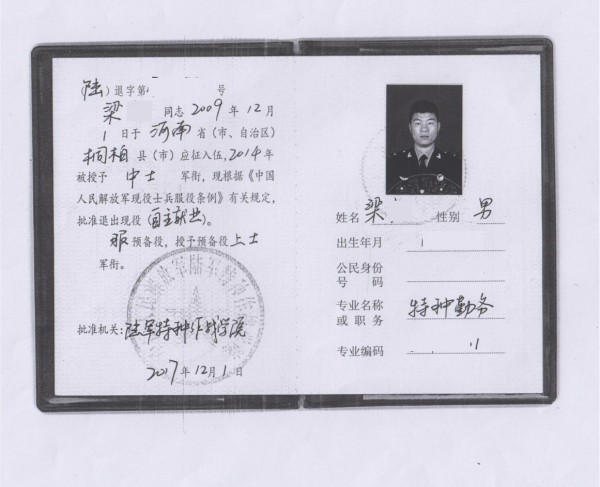 （陆）退字第 号
梁 同志2009年12月
1日于河南省（市、自治区）
桐柏县（市）应征入伍，2014年
被授予中士军衔，现根据《中国
人民解放军现役士兵服役条例》有关规定，
批准退出现役（自主就业）。
服预备役，授予预备役上士
军衔。
批准机关：陆军特种作战学院
2017年12月1日
姓名 梁 性别 男
出生年月
公民身份
号码
专业名称 特种勤务
或职务
专业编码